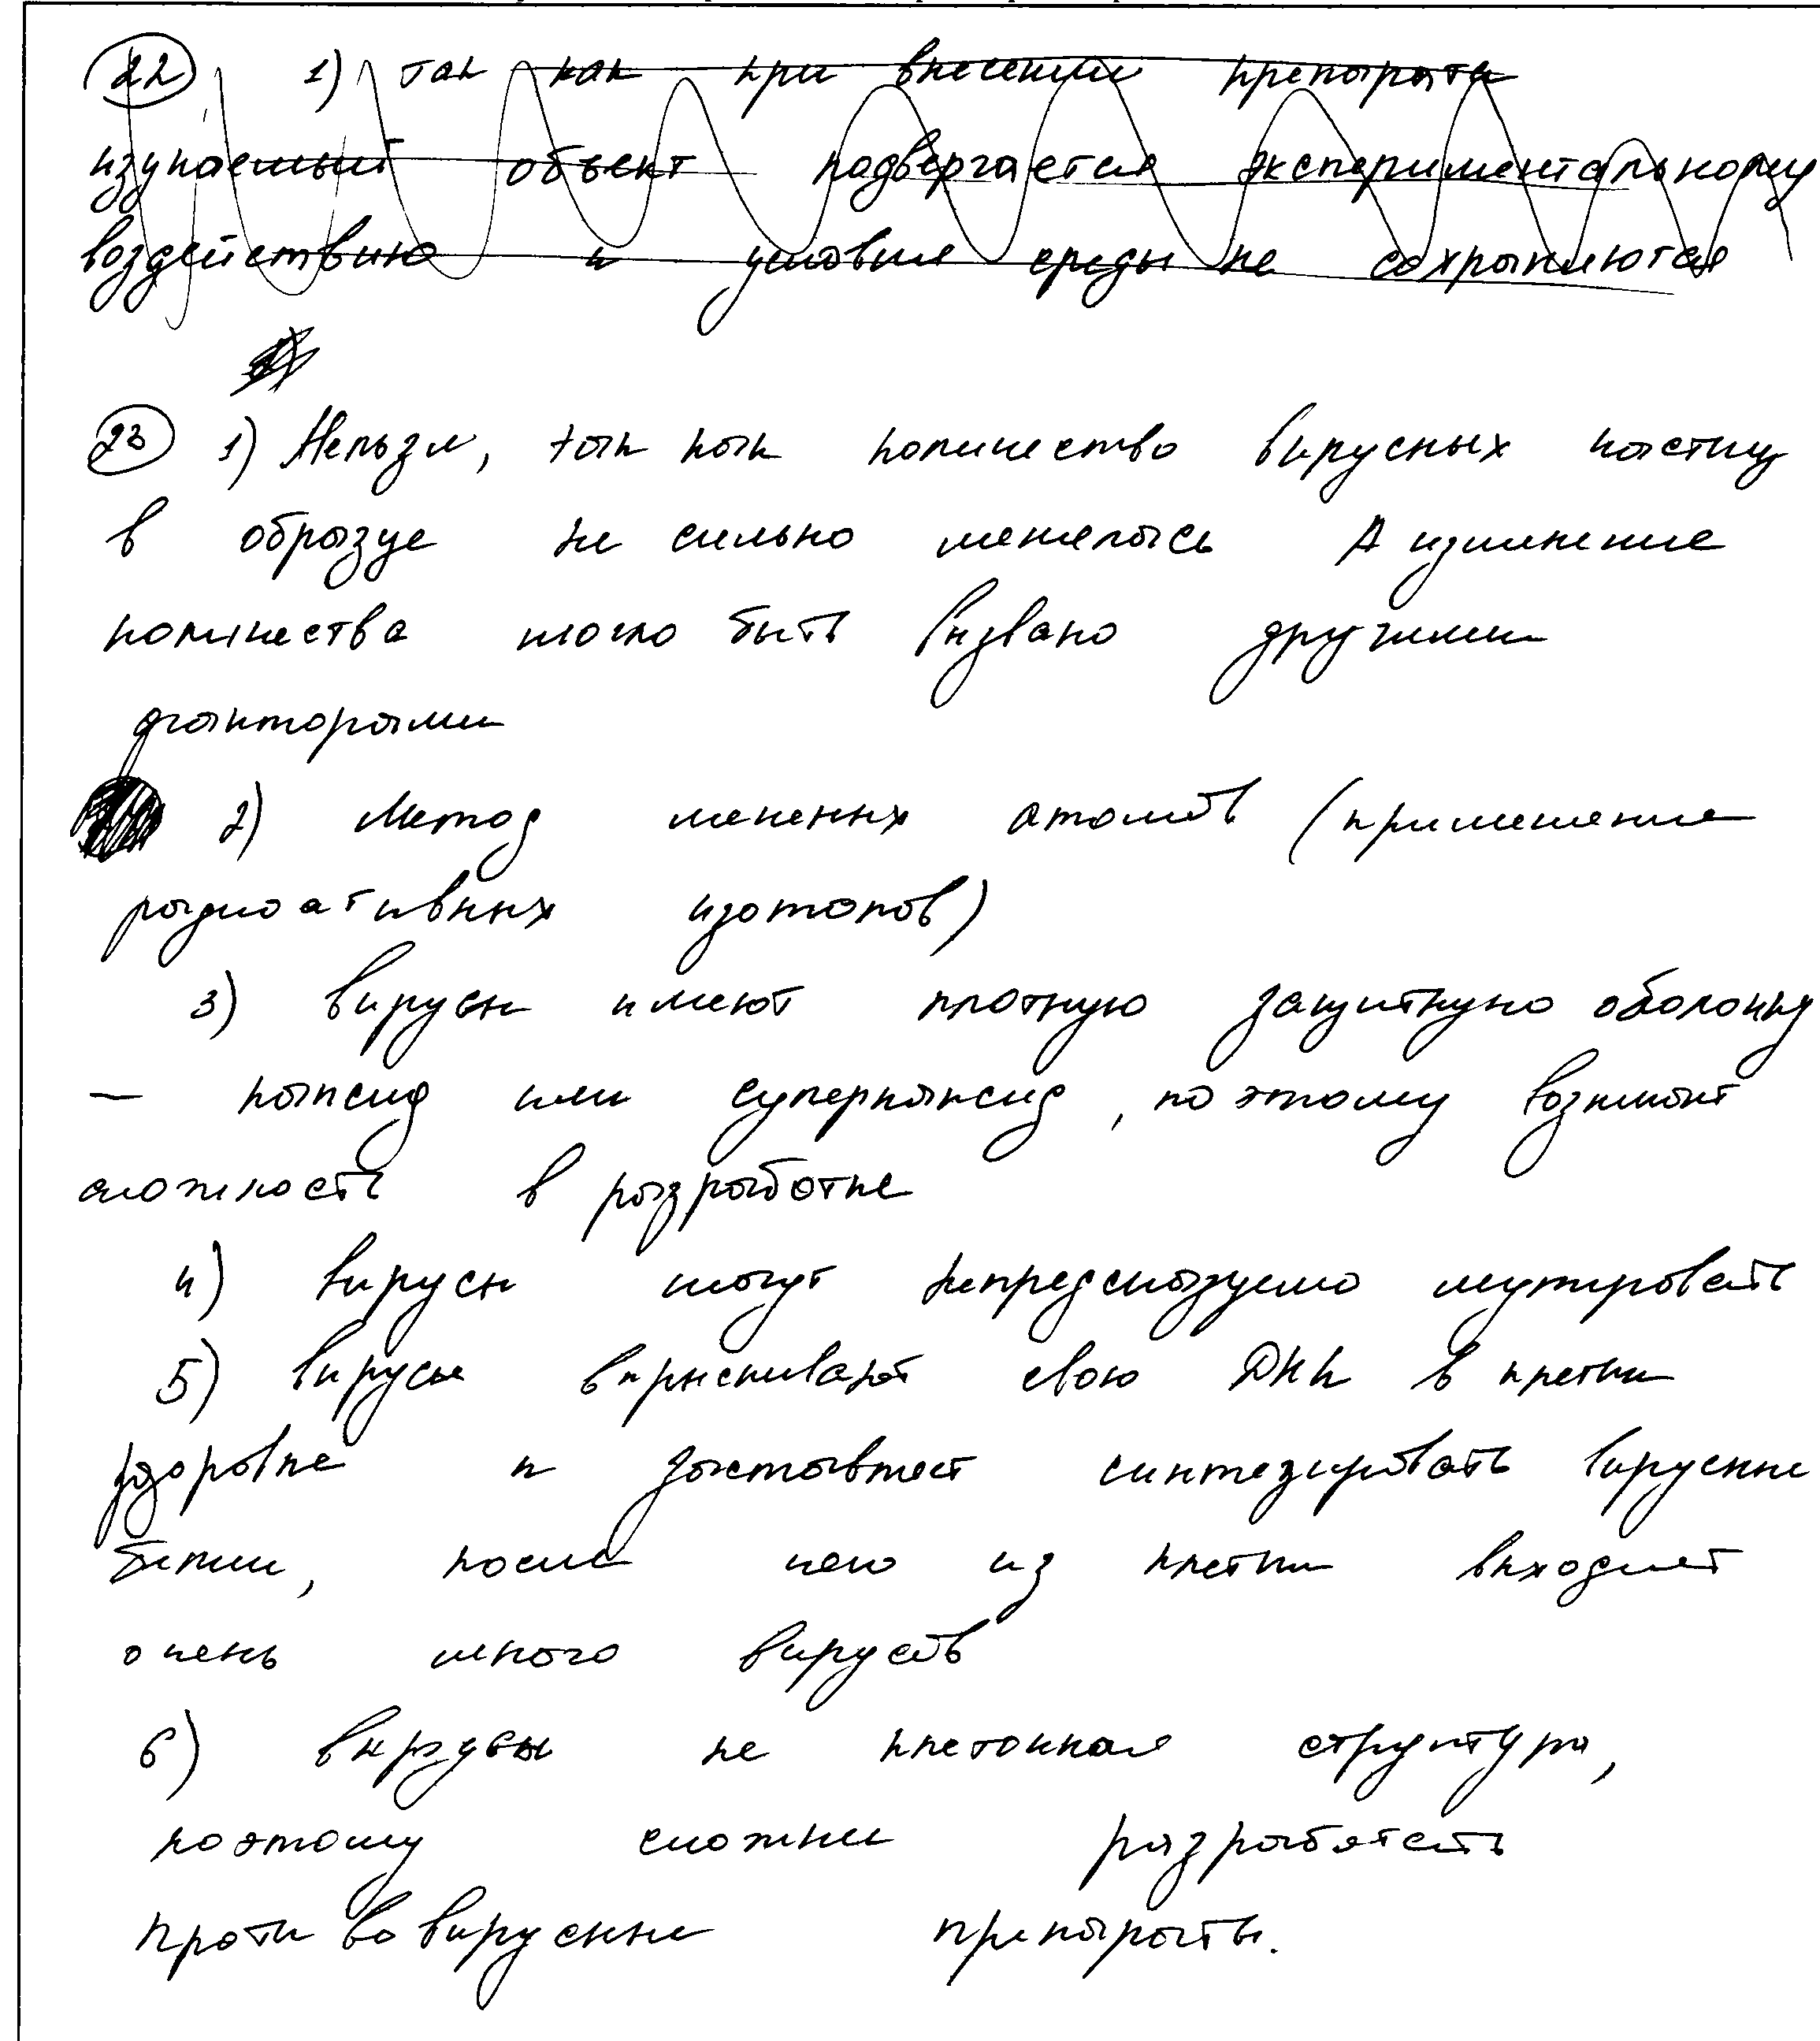 22 1) так как при внесении препарата
изучаемый объект подвергается экспериментальному
воздействию и условия среды не сохраняются
23 1) Нельзя, так как количество вирусных частиц
в образце не сильно менялась А изменение
количества могло быть вызвано другими
факторами
2) Метод меченных атомов (применение
радиоативных изотопов)
3) вирусы имеют плотную защитную оболочку
— капсид или суперкапсид, поэтому возникают
сложность в разработке
4) вирусы могут непредсказуемо мутировать
5) вирусы впрыскивают свою ДНК в клетки
здоровые и заставляет синтезировать вирусные
белки, после чего из клетки выходит
очень много вирусов
6) вирусы не клеточная структура,
поэтому сложны разработать
противовирусные препараты.